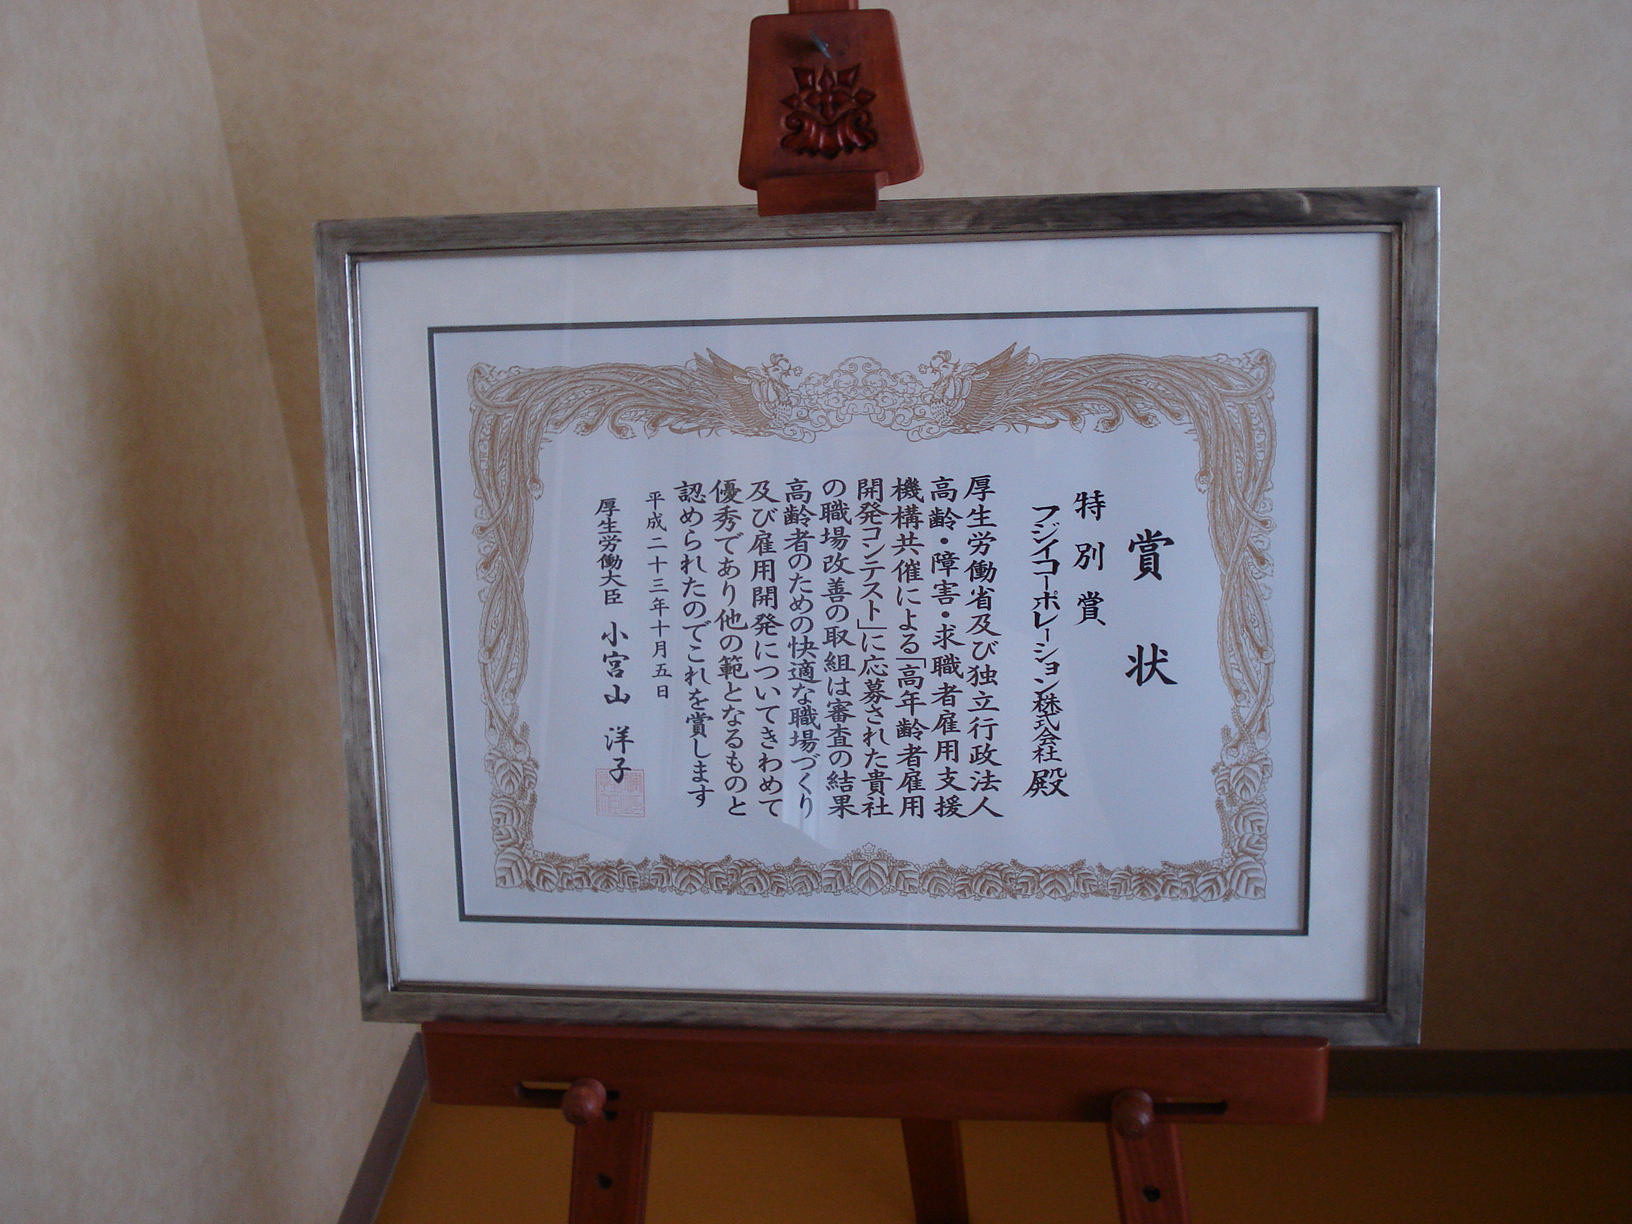 賞状
特別賞
フジイコーポレーション株式会社殿
厚生労働省及び独立行政法人
高齢・障害・求職者雇用支援
機構共催による「高年齢者雇用
開発コンテスト」に応募された貴社
の職場改善の取組は審査の結果
高齢者のための快適な職場づくり
及び雇用開発についてきわめて
優秀であり他の範となるものと
認められたのでこれを賞します
平成二十三年十月五日
厚生労働大臣 小宮山 洋子